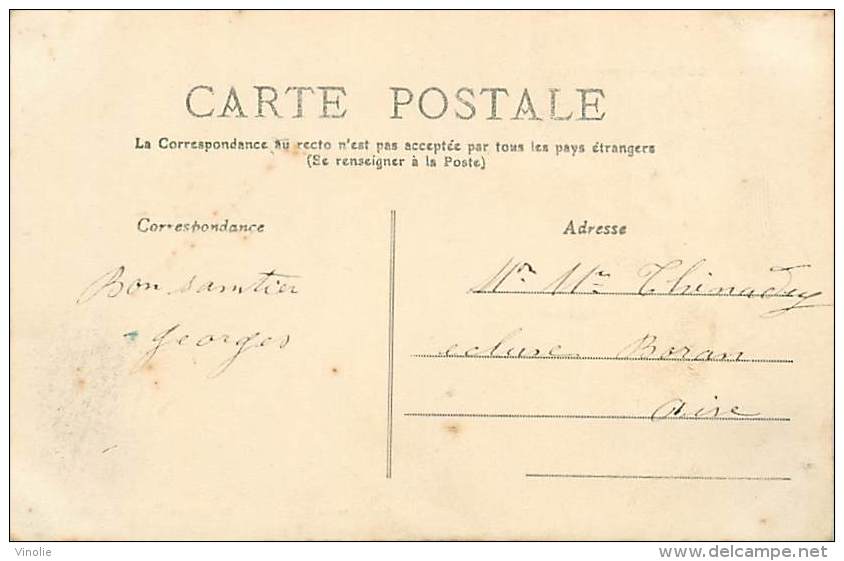 CARTE POSTALE
La Correspondance au recto n'est pas acceptée par tous les pays étrangers
(Se renseigner à la Poste)
Correspondance
Bon
Georges
Adresse
Mr Mme
ecluse Boran
Oise
Vinolie
www.delcampe.net